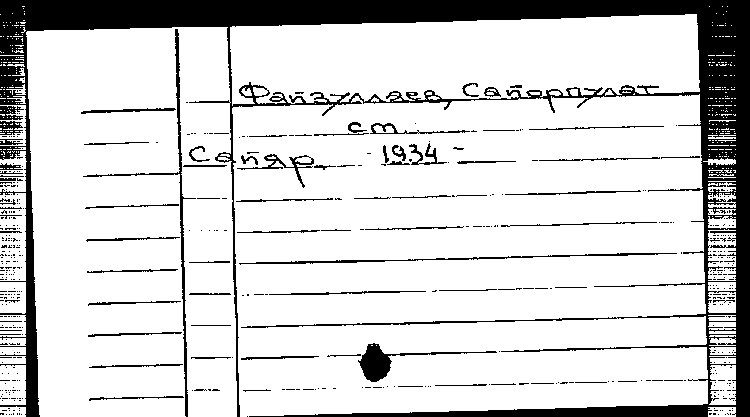 Файзуллаев, Сапарпулат
см.
Сапяр, 1934 -